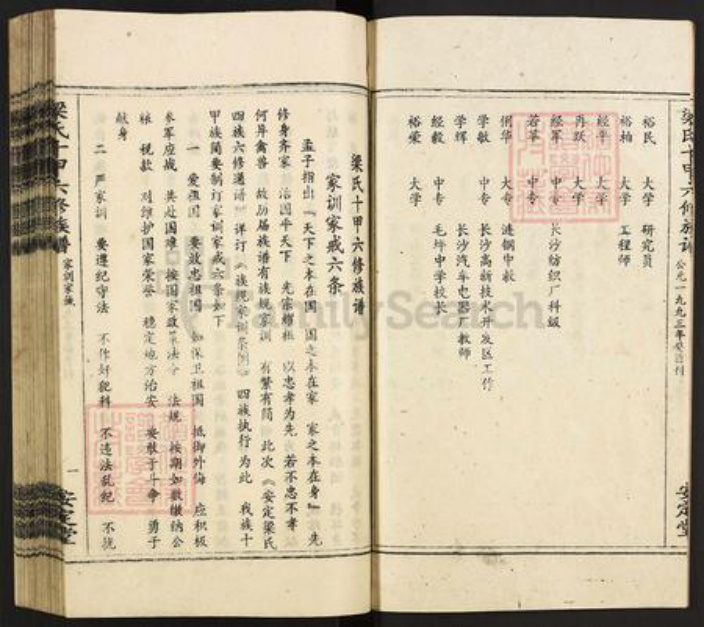 梁氏十甲六修族谱
公元一九九三年癸酉刊
安定堂
裕民 大学 研究员
裕柏 大学 工程师
经平 大学
再跃 大学
经军 中专 长沙纺织厂科级
若莘 中专
俐华 大专 涟钢中教
学敏 中专 长沙高新技术开发区工作
学辉 长沙汽车电器厂教师
经毅 中专 毛坪中学校长
裕荣 大学
梁氏十甲六修族谱
家训家戒六条
孟子指出「天下之本在国 国之本在家 家之本在身」 先
修身齐家 治国平天下 先宗耀祖 以忠孝为先 若不忠不孝
何异禽兽 故历届族谱有族规家训 有繁有简 此次《安定梁氏
四族六修通谱》详订《族规家训条例》 四族执行为此 我族十
甲族简要制订家训家戒六条如下
一 爱祖国 要效忠祖国 如保卫祖国 抵御外侮 应积极
参军应战 共赴国难 按国家政策法令 法规 按期如数缴纳公
粮 税款 对维护国家荣誉 稳定地方治安 要敢于斗争 勇于
献身
二 严家训 要遵纪守法 不作奸犯科 不违法乱纪 不扰
梁氏十甲六修族谱
家训家戒
一
安定堂
FamilySearch